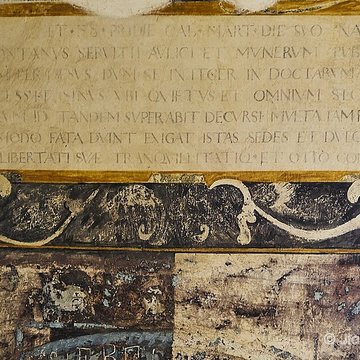 ET · SS · PRIDIE CAL · MART · DIE SVO NA
ONTANVS SERVITII AVLICI ET MVNERVM PV
PERTESVS DVM SE INTEGER IN DOCTARVM
ET OMNIVM SEC
TANDEM SVPERABIT DECVRSI MVLTA IAM P
MODO FATA DVINT EXIGAT ISTAS SEDES ET DVLC
LIBERTATI SVÆ TRANQVILLITATIQ · ET OTIO CO
©